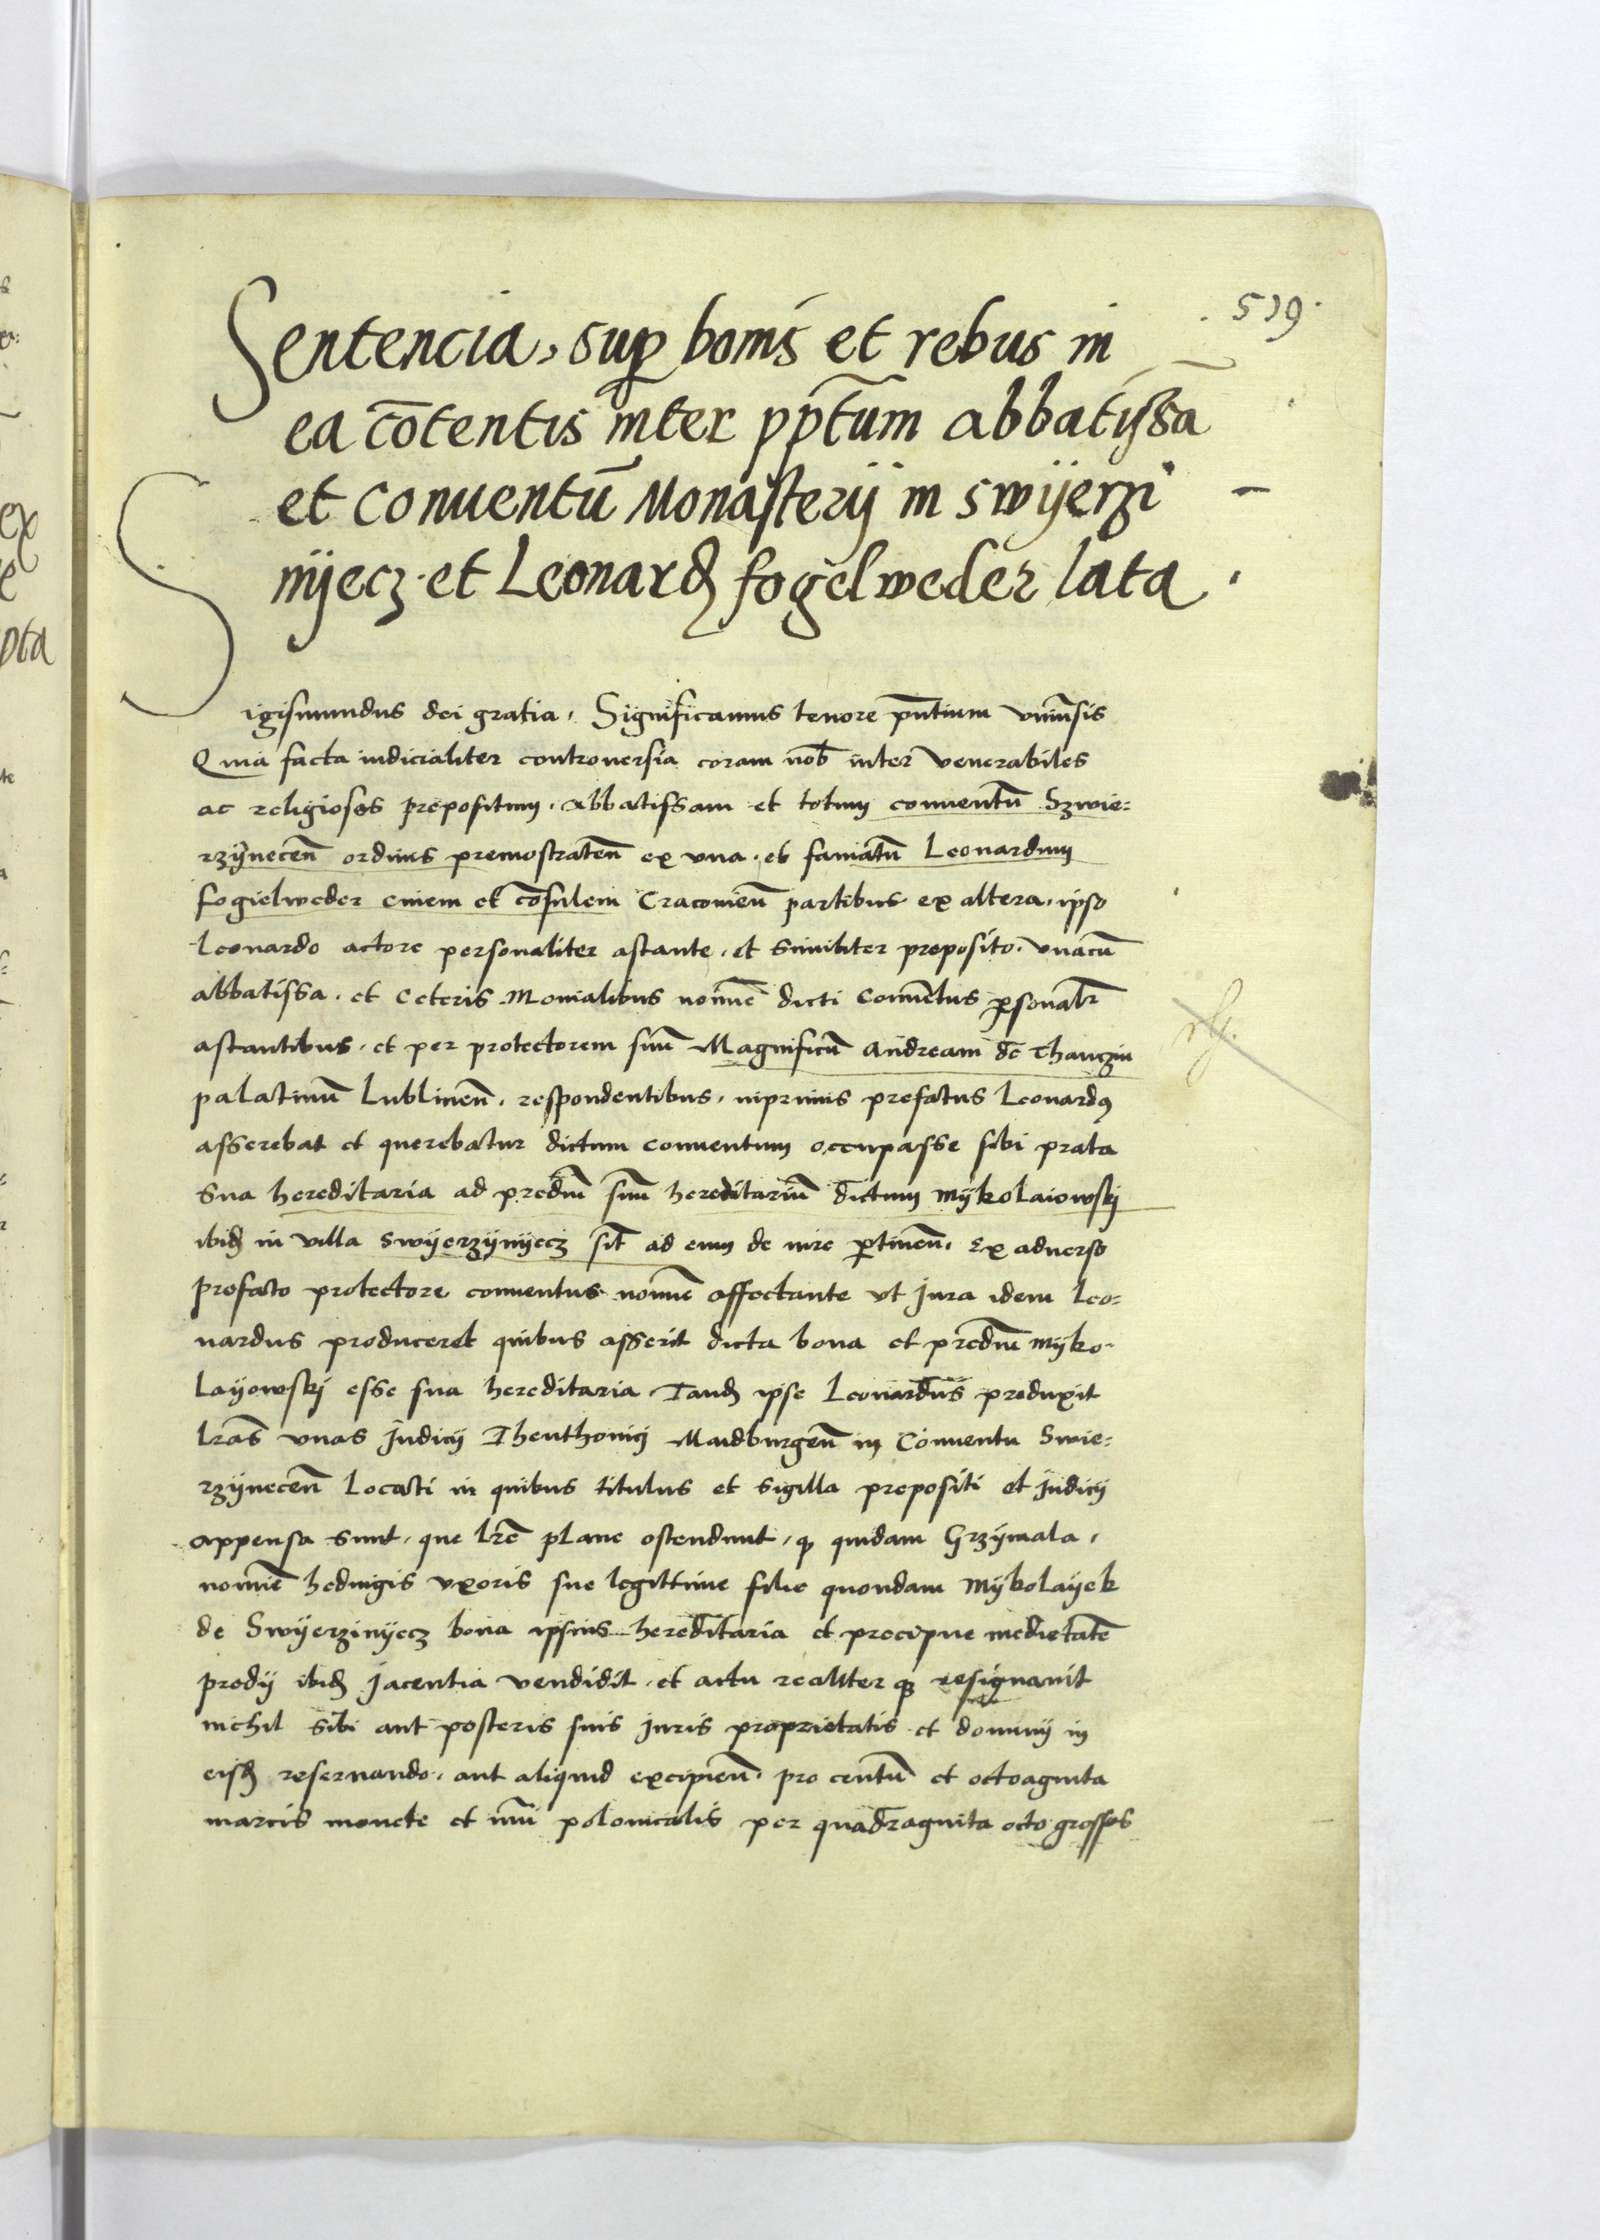 519.
Sentencia, sup bonis et rebus in
ea cōtentis inter pp̄tum abbatyssā
et Conuentū Monasterij in Swyerzi
nyecz et Leonardꝫ fogelweder lata
Sigismundus dei gratia, Significamus tenore pn̄tium vniu̅sis
Quia facta iudicialiter controuersia coram nob̄ inter Venerabiles
ac religiosos prepositum, abbatissam et totum conuentū Szwie-
rzynecen̄ ordinis premostraten̄ ex vna, et famatū Leonardum
fogielweder ciuem et cōsulem Cracouien̄ partibus ex altera, ipso
Leonardo actore personaliter astante, et similiter preposito, vnacū
abbatissa, et ceteris Monialibus nomīe dicti Conuēntus ꝑsonalr̄
astantibus, et per protectorem suū Magnificū Andream de Thanczin
palatinū Lublinen̄, respondentibus, inprimis prefatus Leonardꝰ
asserebat et querebatur dictum conuentum occupasse sibi prata
sua hereditaria ad prediū suū hereditariū dictum Mykolaiowskj
ibidꝫ in villa Swyerzynyecz sit̄ ad eum de iure ꝑtinen̄, Ex aduerso
prefato protectore conuentus nomīe affectante vt Jura idem Leo-
nardus produceret quibus asserit dicta bona et prediū Myko-
layowskj esse sua hereditaria, Tandꝫ ipse Leonardus produxit
lrās vnas Judicij Theuthonicj Maidburgen̄ in Conuentu Swie-
rzynecen̄ Locati in quibus titulus et sigilla prepositi et Judicij
appensa sunt, que lrē plane ostendunt, ꝙ quidam Grzymala,
nomīe hedwigis vxoris sue legittime filie quondam Mykolayek
de Swyerzinyecz bona ipsius hereditaria et precipue medietatē
predij ibidꝫ Jacentia vendidit, et actu realiter ꝙ resignauit
nichil sibi aut posteris suis Juris proprietatis et dominij in
eisdꝫ reseruando, aut aliquid excipien̄, pro centū et octoaginta
marcis monete et nūi polonicalis per quadraginta octo grossos